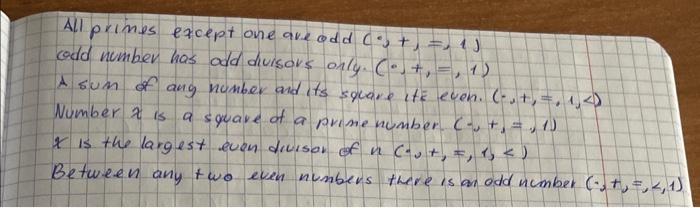 All primes except one are odd (·, +, =, 1)
odd number has odd divisors only. (·, +, =, 1)
A sum of any number and its square its even. (·, +, =, 1, <)
Number x is a square of a prime number. (·, +, =, 1)
x is the largest even divisor of n (·, +, =, 1, <)
Between any two even numbers there is an odd number (·, +, =, <, 1)